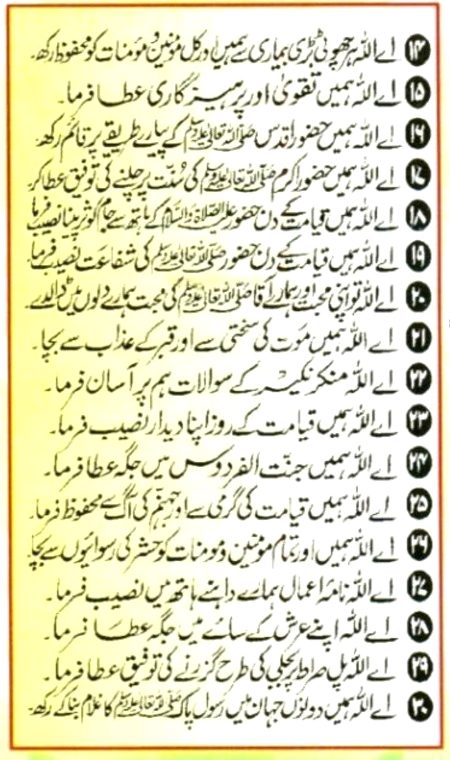 ۱۴ اے اللہ ہر چھوٹی بڑی بیماری سے ہمیں اور کل مومنین و مومنات کو محفوظ رکھ۔
۱۵ اے اللہ ہمیں تقویٰ اور پرہیزگاری عطا فرما۔
۱۶ اے اللہ ہمیں حضور اقدس صلی اللہ تعالیٰ علیہ وسلم کے پیارے طریقے پر قائم رکھ
۱۷ اے اللہ ہمیں حضور اکرم صلی اللہ تعالیٰ علیہ وسلم کی سُنّت پر چلنے کی توفیق عطا کر
۱۸ اے اللہ ہمیں قیامت کے دن حضور علیہ الصلاۃ والسلام کے ہاتھ سے جام کوثر پینا نصیب فرما
۱۹ اے اللہ ہمیں قیامت کے دن حضور صلی اللہ تعالیٰ علیہ وسلم کی شفاعت نصیب فرما۔
۲۰ اے اللہ تو اپنی محبت اور ہمارے آقا صلی اللہ تعالیٰ علیہ وسلم کی محبت ہمارے دلوں میں ڈالدے۔
۲۱ اے اللہ ہمیں موت کی سختی سے اور قبر کے عذاب سے بچا۔
۲۲ اے اللہ منکر نکیر کے سوالات ہم پر آسان فرما۔
۲۳ اے اللہ ہمیں قیامت کے روز اپنا دیدار نصیب فرما۔
۲۴ اے اللہ ہمیں جنت الفردوس میں جگہ عطا فرما۔
۲۵ اے اللہ ہمیں قیامت کی گرمی سے اور جہنم کی آگ سے محفوظ فرما۔
۲۶ اے اللہ ہمیں اور تمام مومنین و مومنات کو حشر کی رسوائیوں سے بچا
۲۷ اے اللہ نامۂ اعمال ہمارے داہنے ہاتھ میں نصیب فرما۔
۲۸ اے اللہ اپنے عرش کے سائے میں جگہ عطا فرما۔
۲۹ اے اللہ پل صراط پر بجلی کی طرح گزرنے کی توفیق عطا فرما۔
۳۰ اے اللہ ہمیں دونوں جہان میں رسول پاک صلی اللہ تعالیٰ علیہ وسلم کا غلام بنا کے رکھ۔